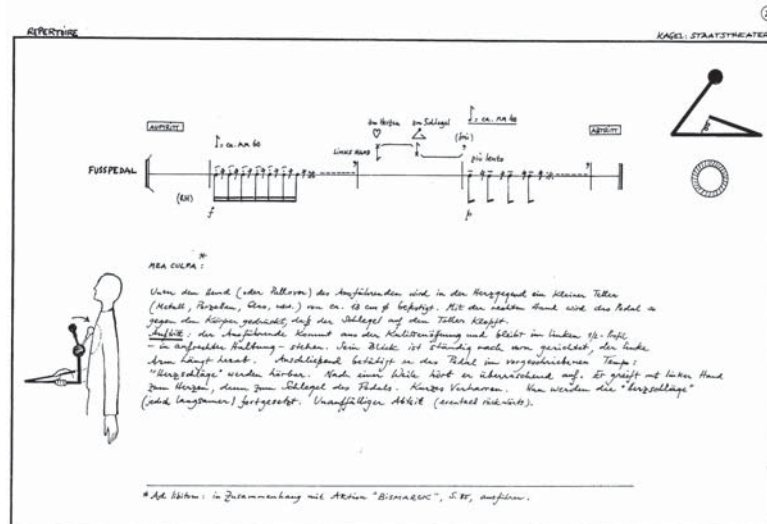 REPERTOIRE
KAGEL: STAATSTHEATER
AUFTRITT
♩= ca. MM 60
zum Herzen
zum Schlegel
♩= ca. MM 40
ABTRITT
LINKE HAND
FUSSPEDAL
più lento
(RH)
f
p
MEA CULPA: *
Unter dem Hemd (oder Pullover) des Ausführenden wird in der Herzgegend ein kleiner Teller
(Metall, Porzellan, Glas, usw.) von ca. 13 cm ø befestigt. Mit der rechten Hand wird das Pedal so
gegen den Körper gedrückt, daß der Schlegel auf den Teller klopft.
Auftritt: der Ausführende kommt aus der Kulissenöffnung und bleibt im linken Profil
- in aufrechter Haltung - stehen. Sein Blick ist ständig nach vorn gerichtet, der linke
Arm hängt herab. Anschließend betätigt er das Pedal im vorgeschriebenen Tempo:
"Herzschläge" werden hörbar. Nach einer Weile hört er überraschend auf. Er greift mit linker Hand
zum Herzen, dann zum Schlegel des Pedals. Kurzes Verharren. Nun werden die "Herzschläge"
(jedoch langsamer) fortgesetzt. Unauffälliger Abtritt (eventuell rückwärts).
* Ad libitum: in Zusammenhang mit Aktion "BISMARCK", S. 85, ausführen.